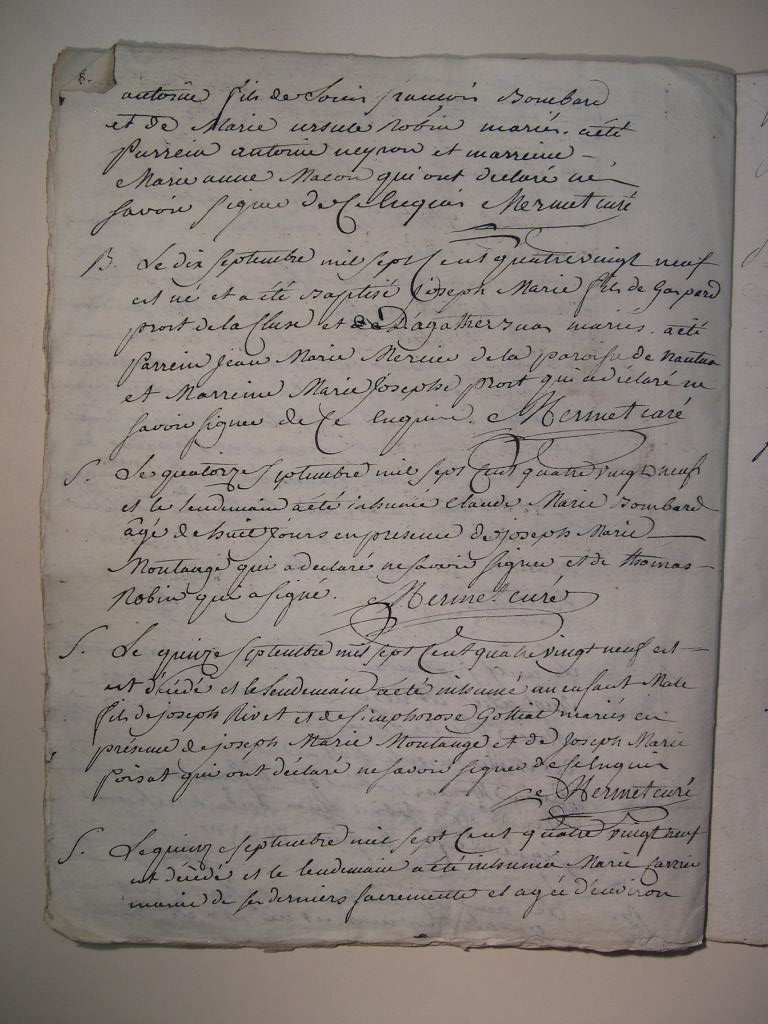 8.
antoine fils de Louis françois Bombard
et de Marie ursule Robin mariés. a été
Parrein antoine neyron et marreine -
Marie anne Macon qui ont declaré ne
savoir signer de ce enquis Mermet curé
B. Le dix septembre mil sept Cent quatre vingt neuf
est né et a été Baptisé joseph Marie fils de Gaspard
prost de la Cluse et de D'agathe mariés. a été
Parrein Jean Marie Mercier de la paroisse de nantua
et Marreine Marie Josephe prost qui a déclaré ne
savoir signer de Ce enquise. Mermet curé
S. Le quatorze septembre mil sept Cent quatre vingt neuf
et le lendemain a été inhumé Claude Marie Bombard
âgé de huit jours en presence de joseph Marie
Montange qui a declaré ne savoir signer et de thomas
Robin qui a signé. Mermet curé
S. Le quinze septembre mil sept Cent quatre vingt neuf est
est décédé et le lendemain a été inhumé un enfant Male
fils de joseph Rivet et de Simphorose Golliat mariés en
présence de joseph Marie Montange et de Joseph Marie
Poisat qui ont déclaré ne savoir signer de Ce enquis
Mermet curé
S. Le quinze septembre mil sept Cent quatre vingt neuf
est décédé et le lendemain a été inhumée Marie
munie de ses derniers sacrements et agée d'environ